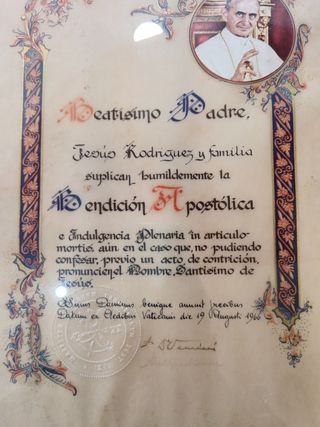 Beatísimo Padre,
Jesús Rodríguez y familia
suplican humildemente la
Bendición Apostólica
e Indulgencia Plenaria in articulo
mortis, aún en el caso que, no pudiendo
confesar, previo un acto de contrición,
pronuncien el Nombre Santísimo de
Jesús.
Dominus benigne annuit precibus
Datum ex Aedibus Vaticanis die 19 August 1966